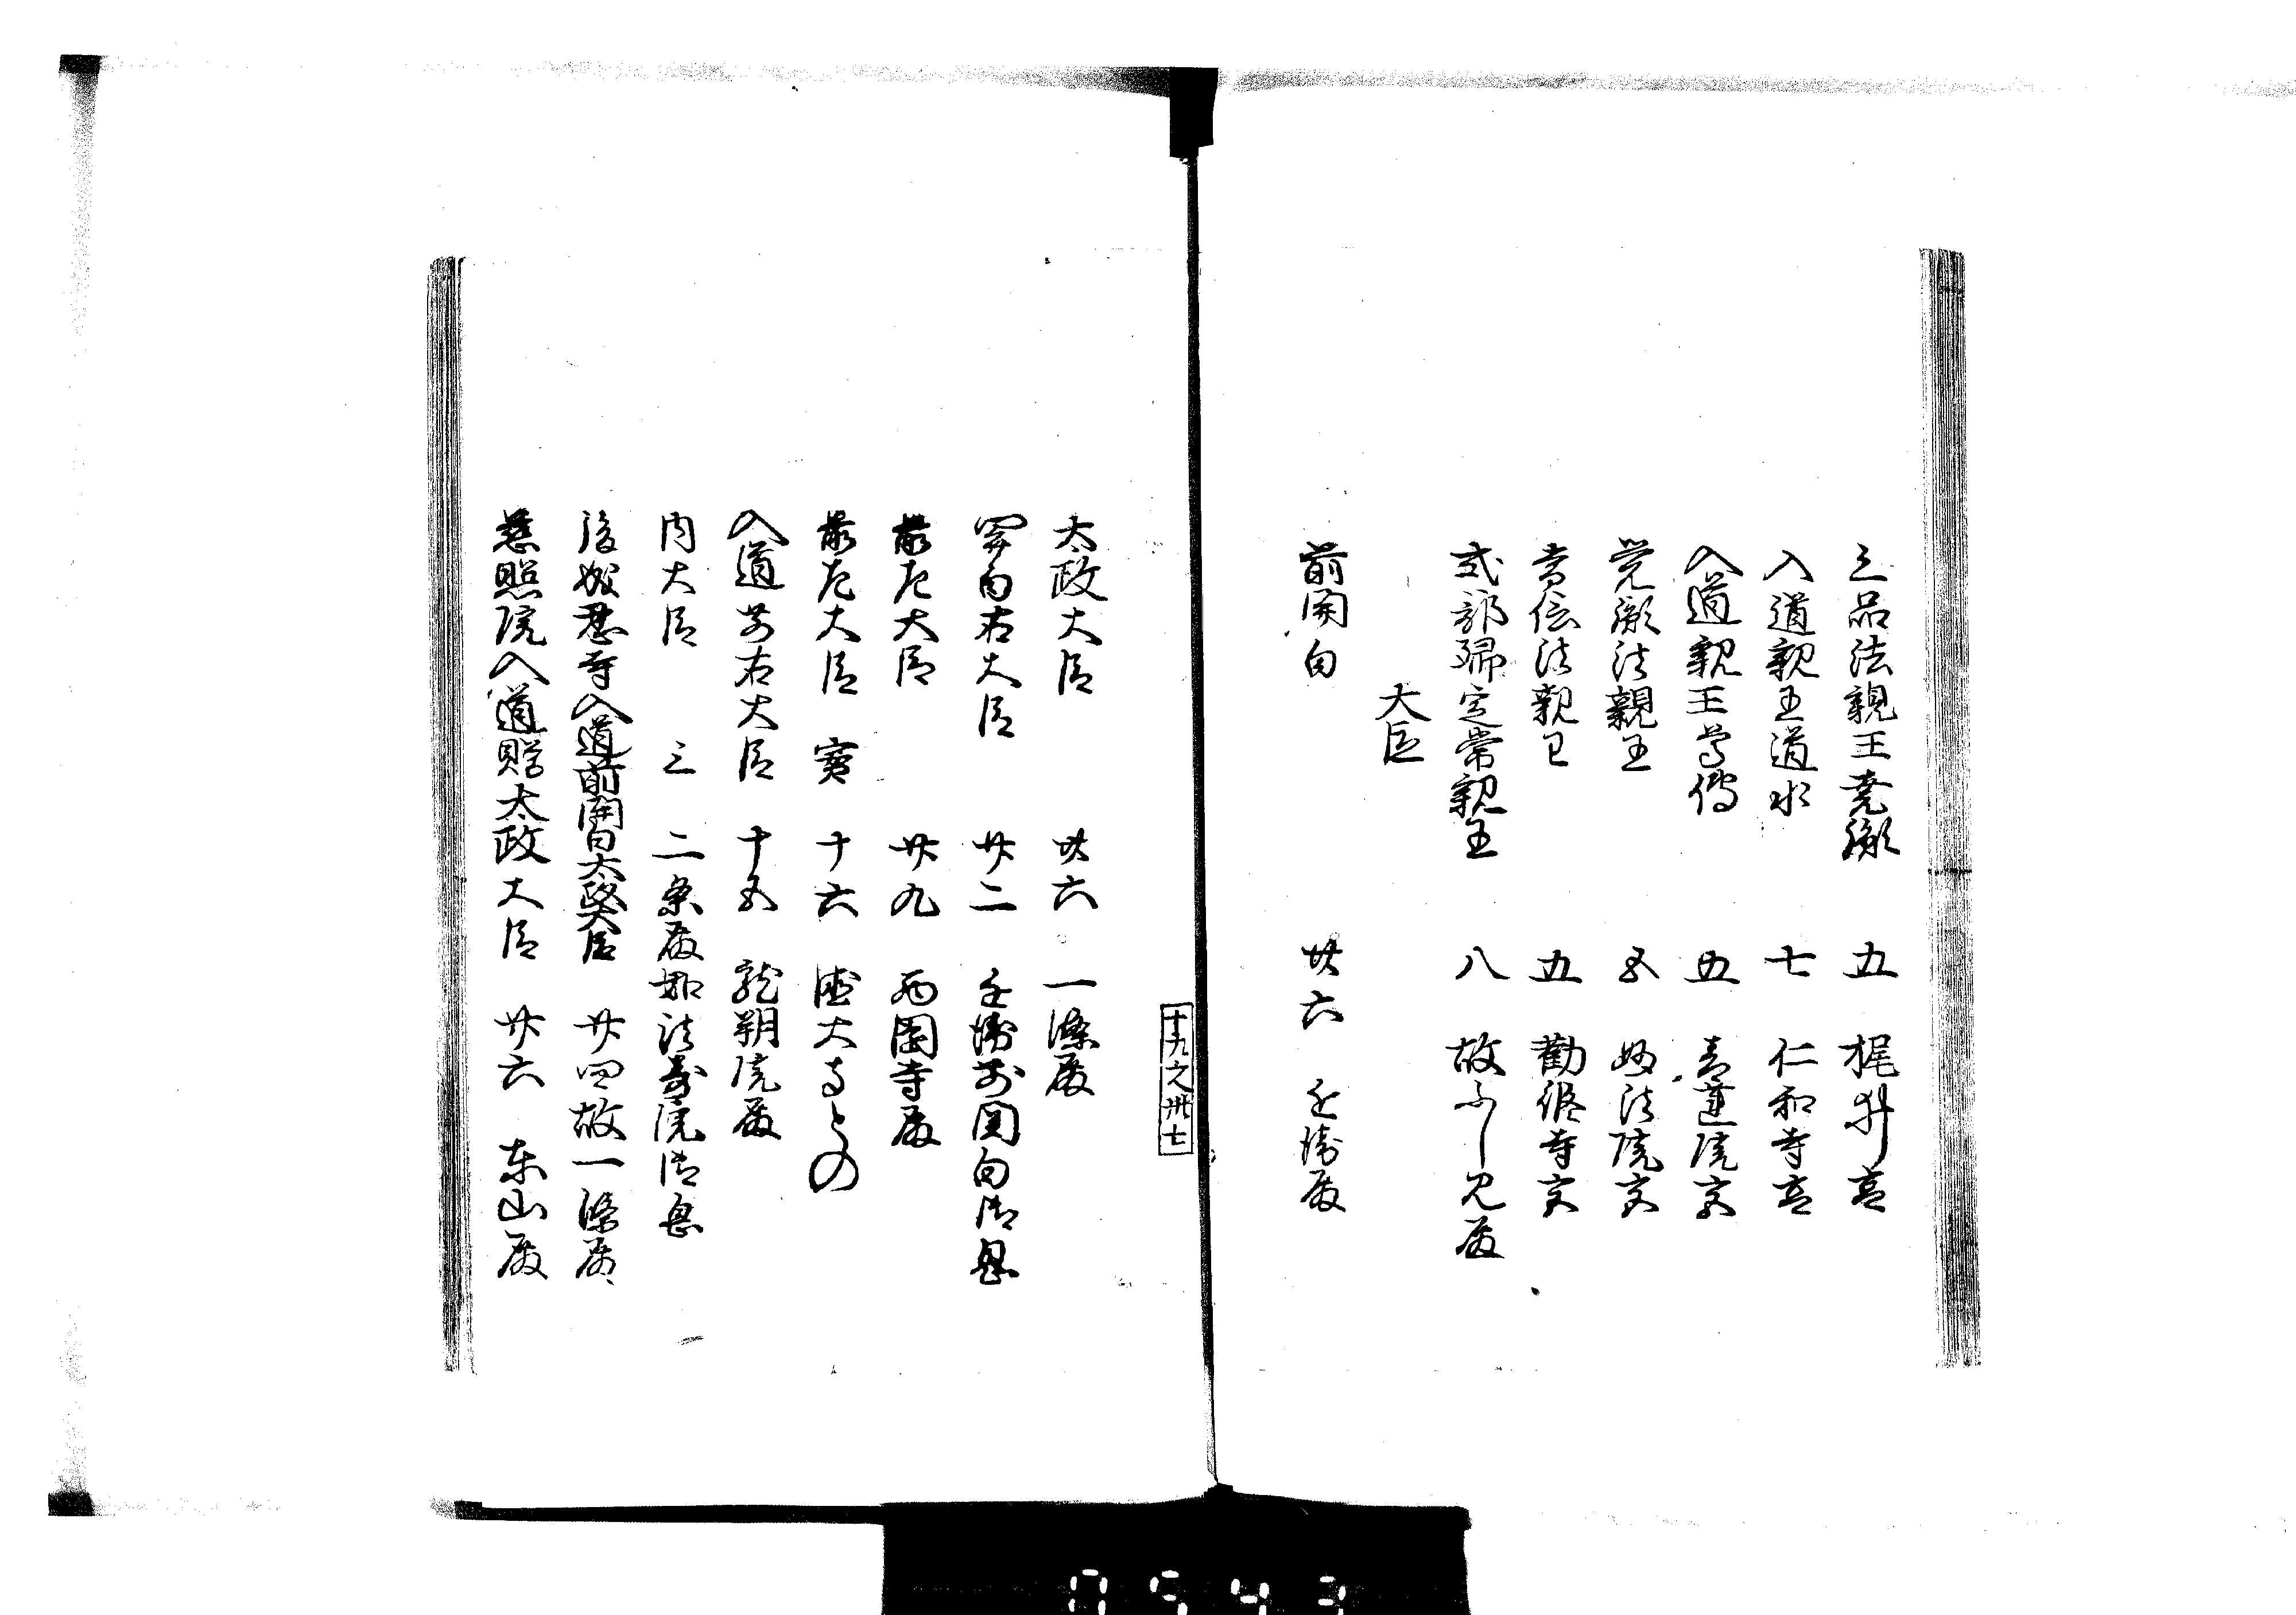 三品法親王堯胤 五 梶井宮
入道親王道永 七 仁和寺宮
入道親王尊傳 五 青蓮院宮
覚胤法親王 五 妙法院宮
常信法親王 五 勧修寺宮
式部卿定常親王 八 故ふし見殿
大臣
前関白 廿六 近衛殿
十九之卅七
太政大臣 廿六 一條殿
関白右大臣 廿二 近衛前関白御息
前左大臣 廿九 西園寺殿
前左大臣 實 十六 徳大寺との
入道前右大臣 十五 龍翔院殿
内大臣 三 二条殿如法寿院御息
後妙恩寺入道前関白太政大臣 廿四 故一條殿
慈照院入道贈太政大臣 廿六 東山殿
0543